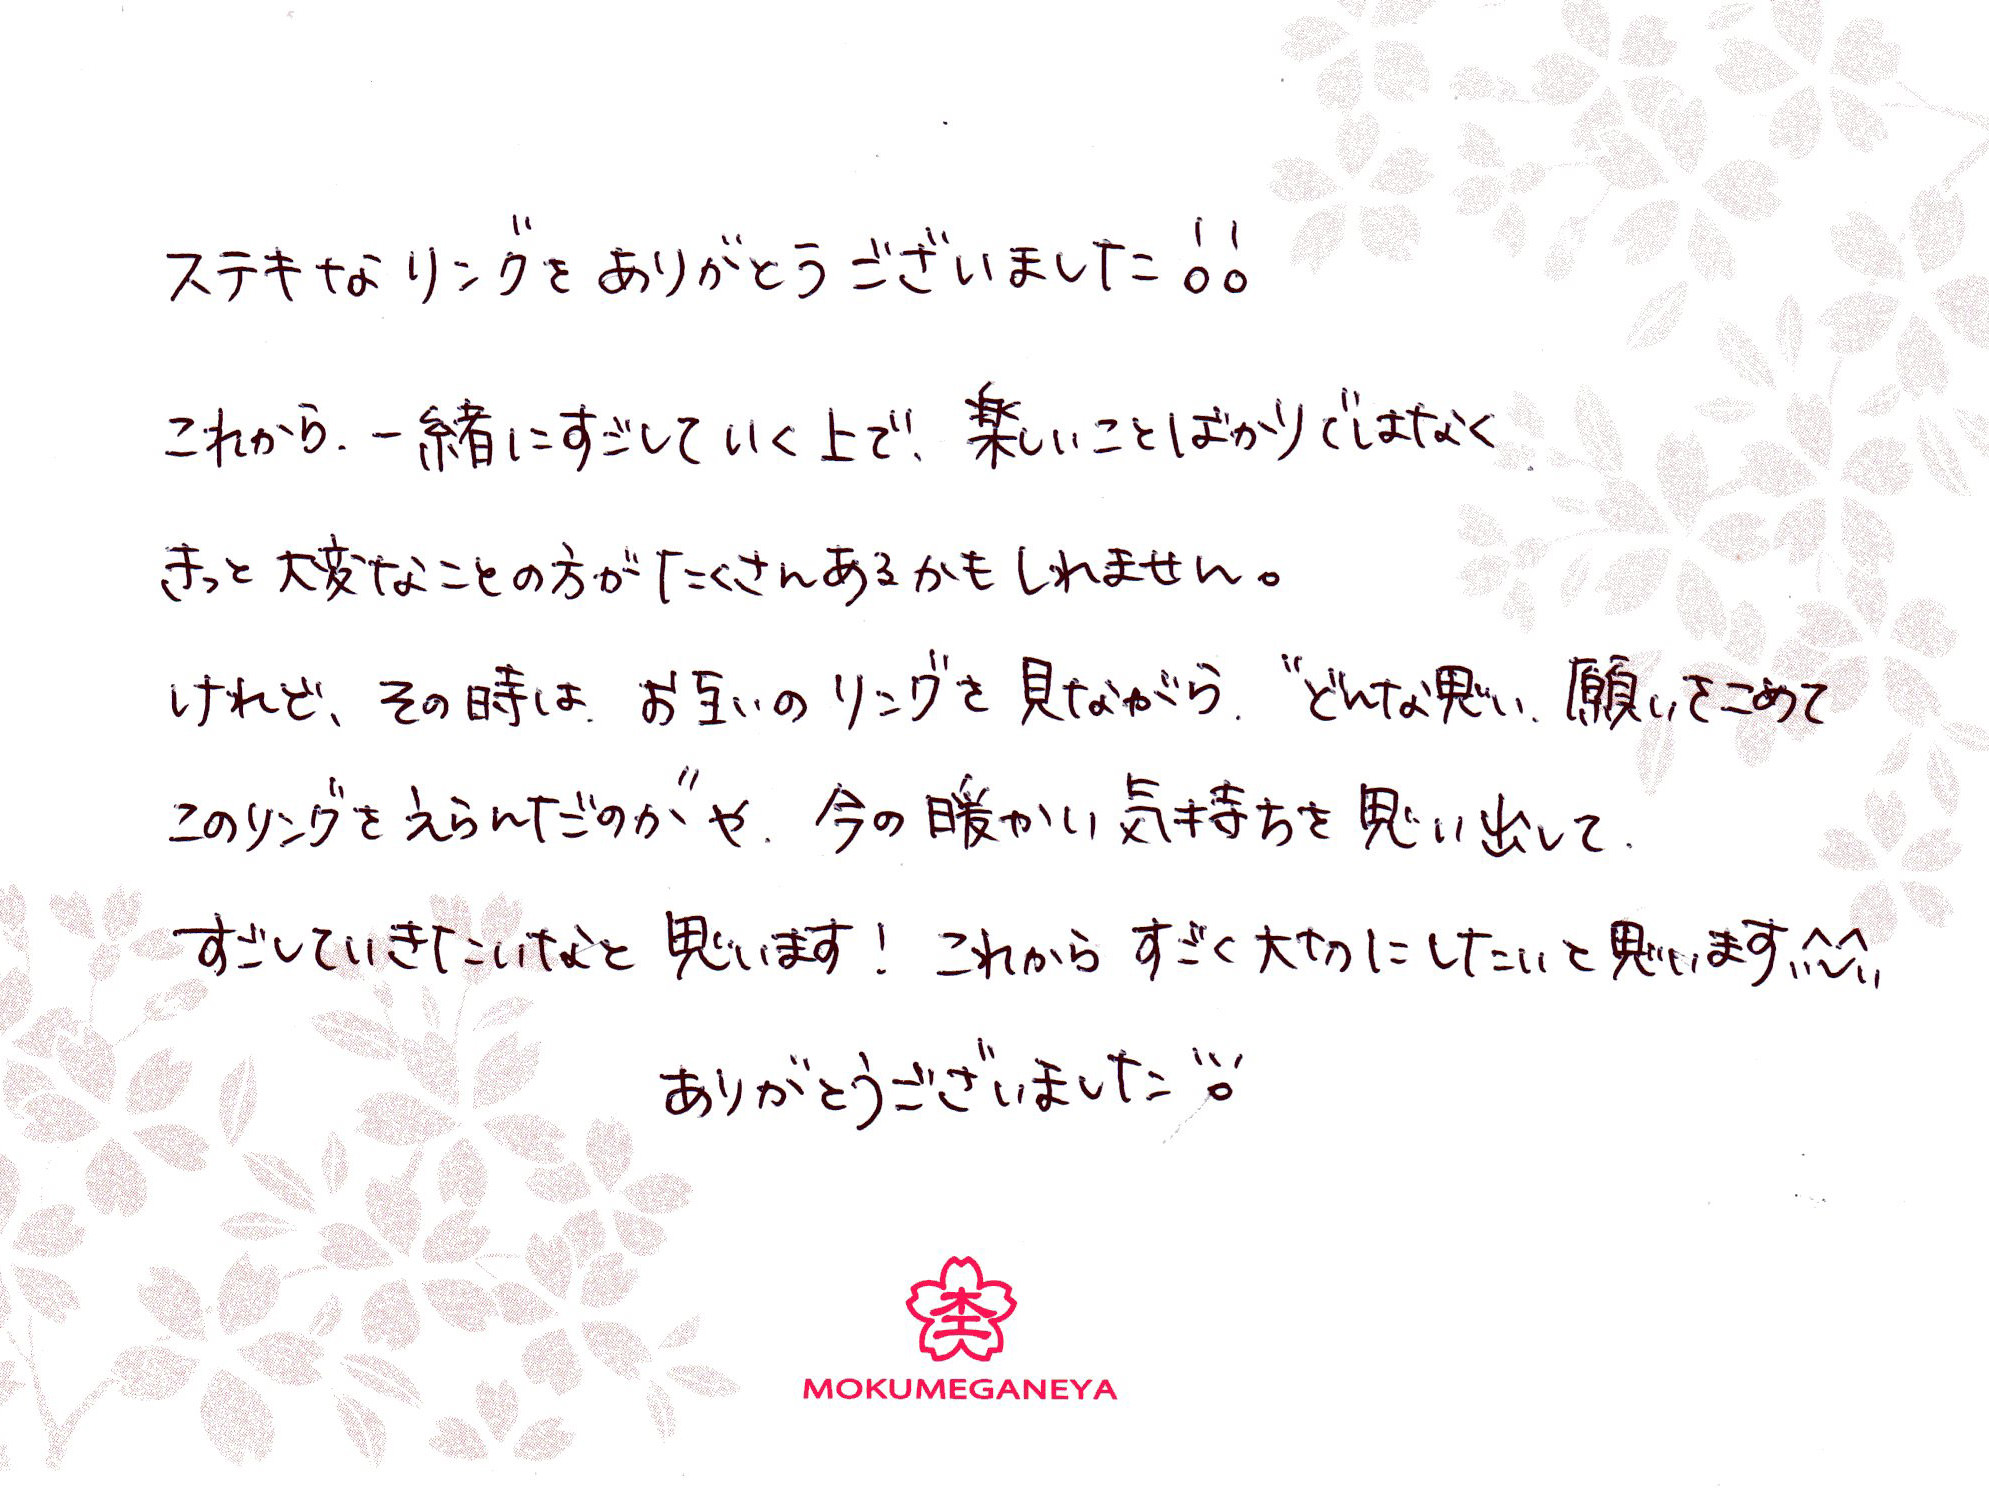 ステキなリングをありがとうございました!!
これから、一緒にすごしていく上で、楽しいことばかりではなく
きっと大変なことの方がたくさんあるかもしれません。
けれど、その時は、お互いのリングを見ながら、"どんな思い、願いをこめて
このリングをえらんだのか"や、今の暖かい気持ちを思い出して、
すごしていきたいなと思います! これからすごく大切にしたいと思います^^
ありがとうございました
杢
MOKUMEGANEYA